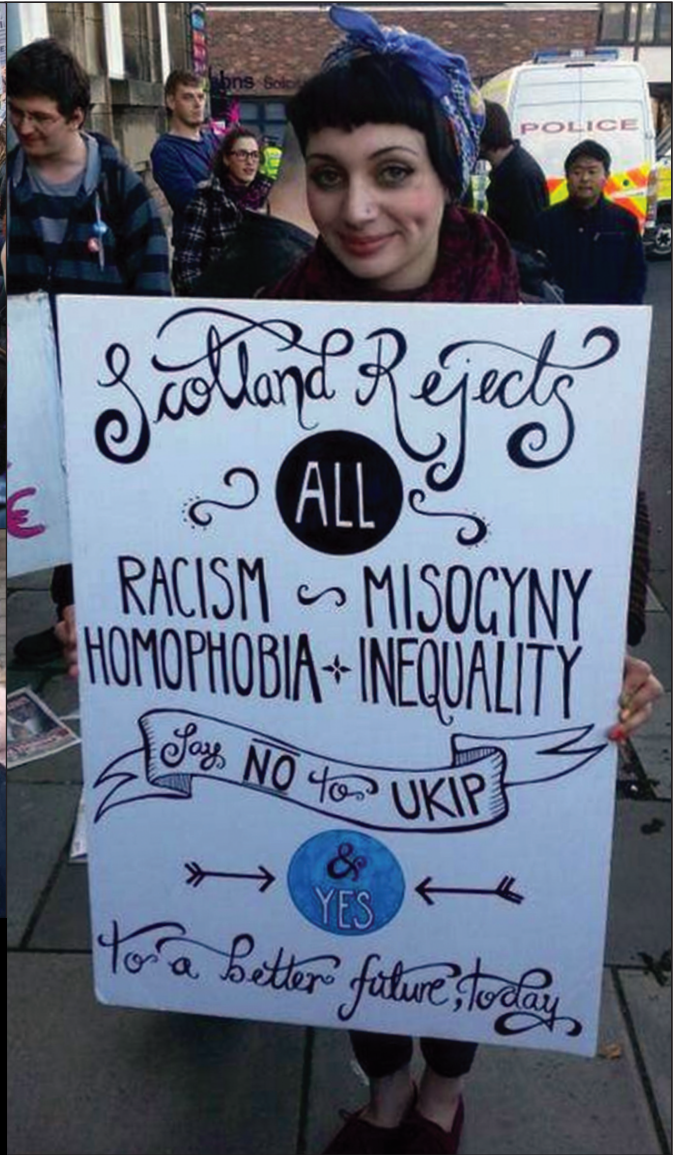 bns Solic
POLICE
Scotland Rejects
ALL
RACISM ~ MISOGYNY
HOMOPHOBIA + INEQUALITY
Say NO to UKIP
&
YES
to a better future, today